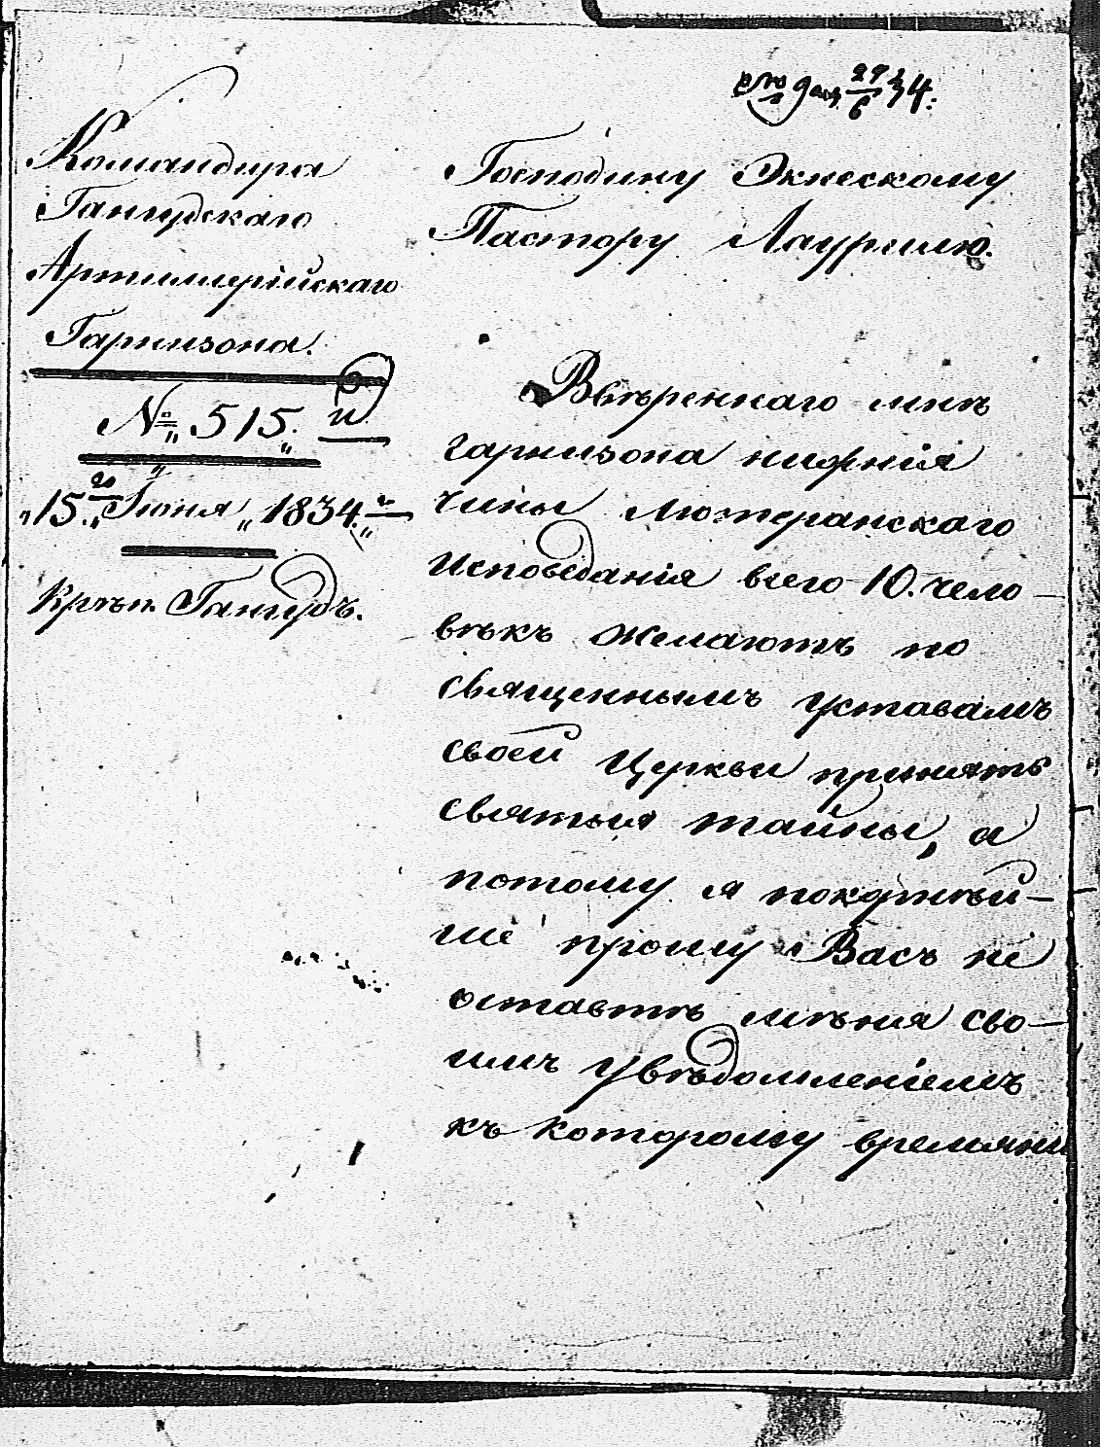 29/6 34:
Командира
Гангудскаго
Артиллерійскаго
Гарнизона.
№ 515. й
"15.го Іюня" 1834. г.
Крѣп. Гангудъ.
Господину Экнескому
Пастору Лаурелю.
Ввѣреннаго мнѣ
гарнизона нижнія
чины Лютеранскаго
Исповѣданія всего 10. чело-
вѣкъ желаютъ по
священнымъ уставамъ
своей Церкви принять
святыя тайны, а
потому я покорнѣй-
ше прошу Васъ не
оставить мѣня сво-
имъ увѣдомленіемъ
къ которому времяни